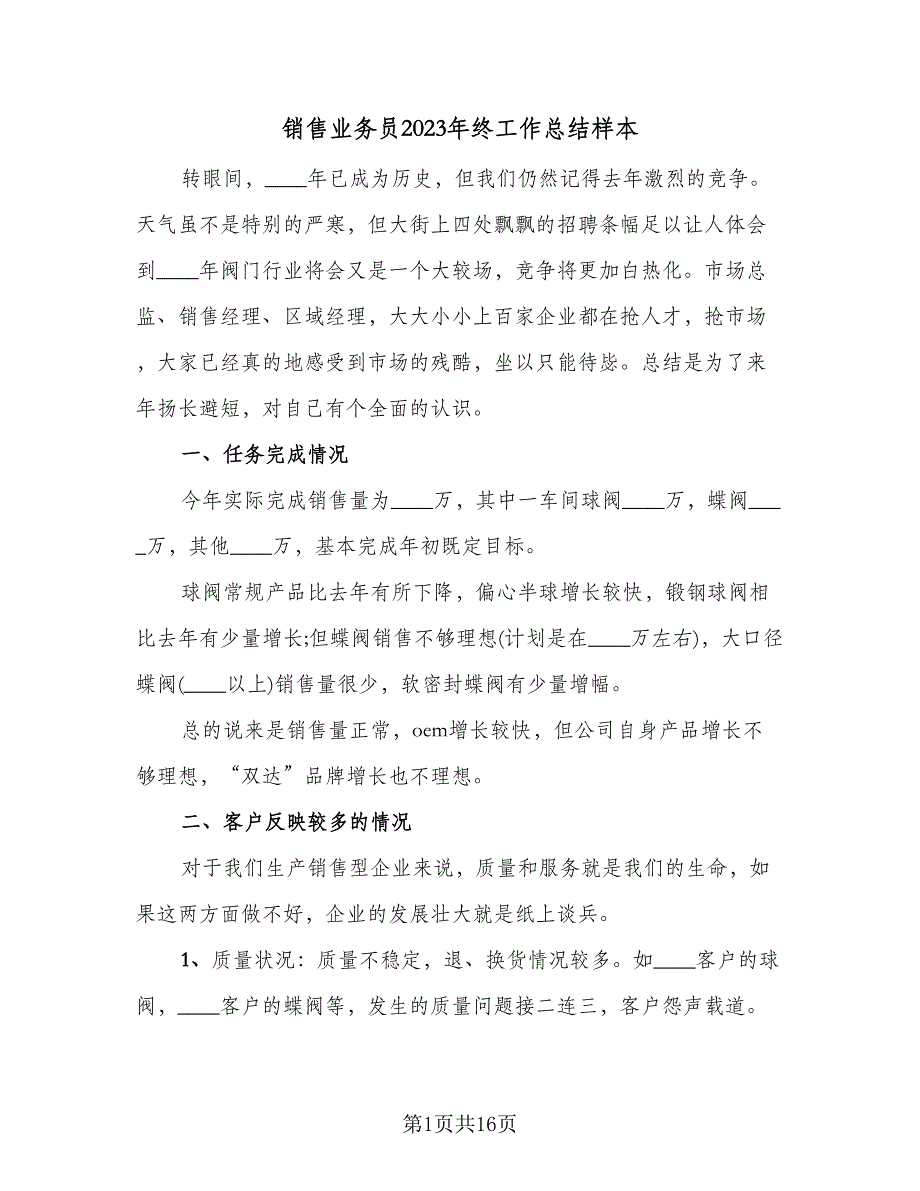 销售业务员2023年终工作总结样本
转眼间，____年已成为历史，但我们仍然记得去年激烈的竞争。
天气虽不是特别的严寒，但大街上四处飘飘的招聘条幅足以让人体会
到____年阀门行业将会又是一个大较场，竞争将更加白热化。市场总
监、销售经理、区域经理，大大小小上百家企业都在抢人才，抢市场
，大家已经真的地感受到市场的残酷，坐以只能待毙。总结是为了来
年扬长避短，对自己有个全面的认识。
一、任务完成情况
今年实际完成销售量为____万，其中一车间球阀____万，蝶阀___
_万，其他____万，基本完成年初既定目标。
球阀常规产品比去年有所下降，偏心半球增长较快，锻钢球阀相
比去年有少量增长;但蝶阀销售不够理想(计划是在____万左右)，大口径
蝶阀(____以上)销售量很少，软密封蝶阀有少量增幅。
总的说来是销售量正常，oem增长较快，但公司自身产品增长不
够理想，“双达”品牌增长也不理想。
二、客户反映较多的情况
对于我们生产销售型企业来说，质量和服务就是我们的生命，如
果这两方面做不好，企业的发展壮大就是纸上谈兵。
1、质量状况：质量不稳定，退、换货情况较多。如____客户的球
阀，____客户的蝶阀等，发生的质量问题接二连三，客户怨声载道。
第1页共16页